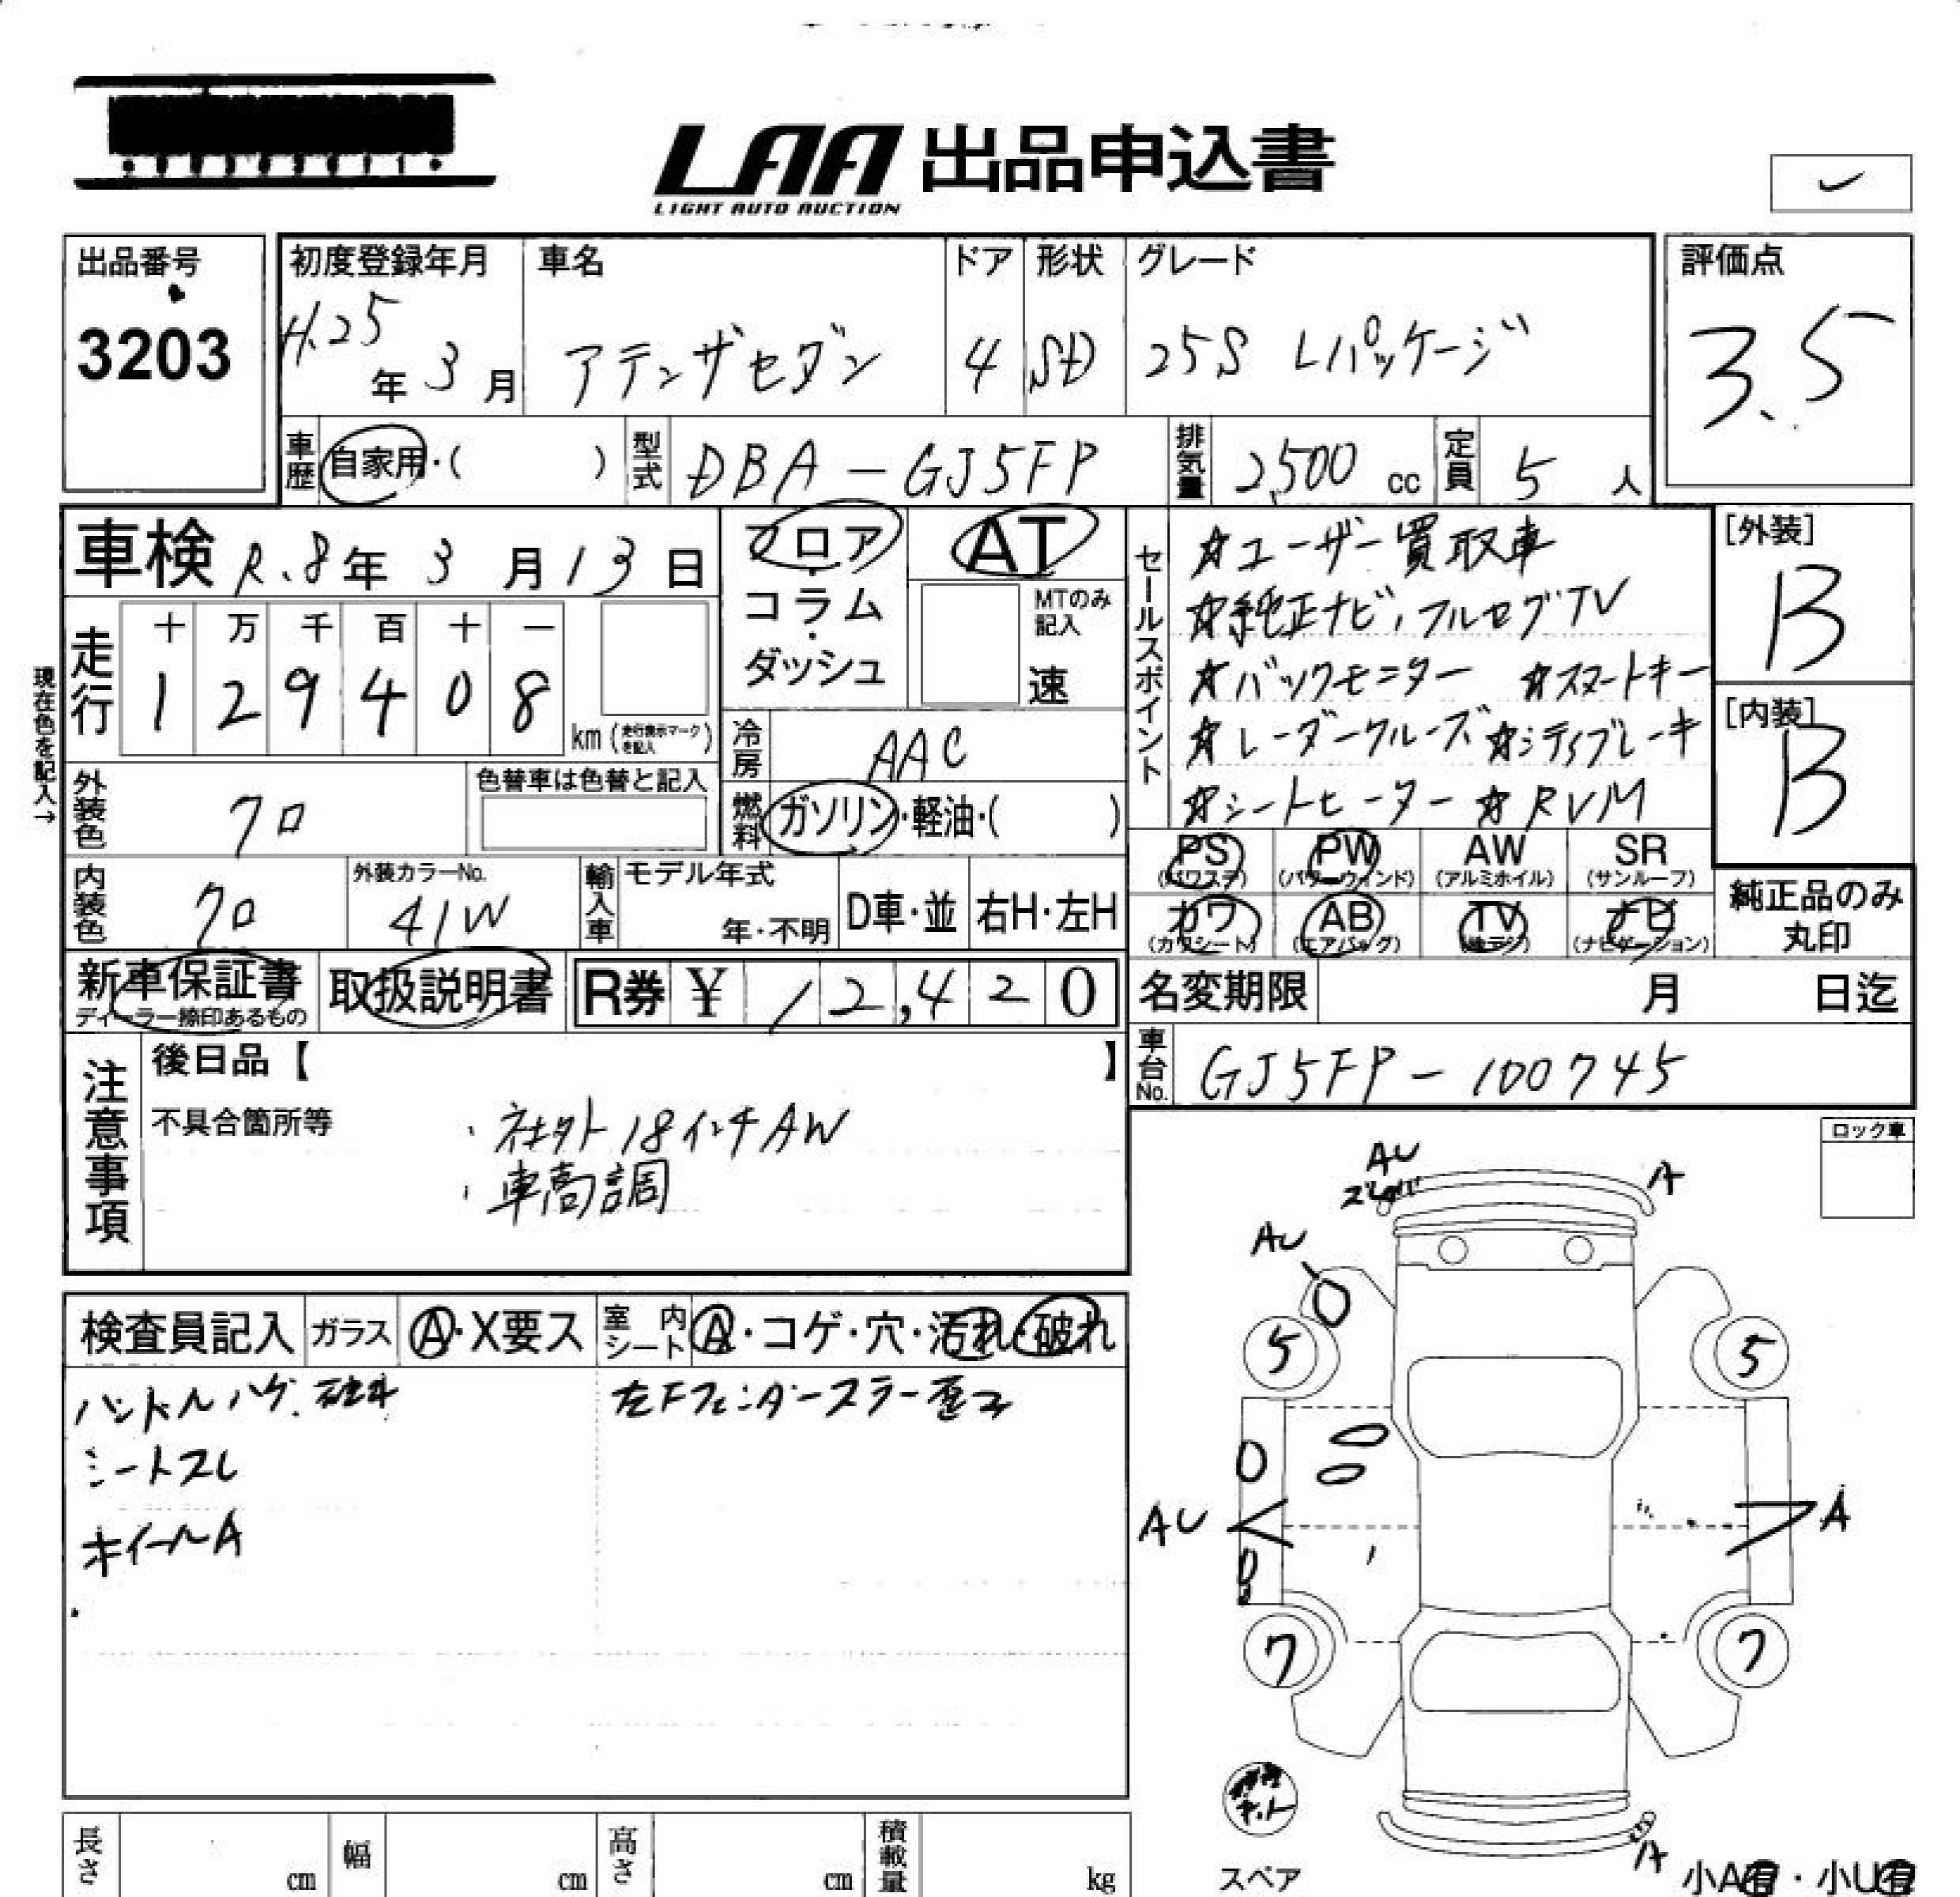 LAA 出品申込書
LIGHT AUTO AUCTION
出品番号
3203
初度登録年月
H.25年3月
車名
アテンザセダン
ドア
4
形状
SD
グレード
25S Lパッケージ
評価点
3.5
車歴 自家用・( )
型式 DBA-GJ5FP
排気量 2,500 cc
定員 5 人
車検 R.8年3月13日
フロア・コラム・ダッシュ
AT
MTのみ記入
速
現在色を記入→
走行
十 万 千 百 十 一
1 2 9 4 0 8
km (走行表示マークを記入)
冷房 AAC
燃料 ガソリン・軽油・( )
外装色 クロ
色替車は色替と記入
内装色 クロ
外装カラーNo.
41W
輸入車
モデル年式
年・不明
D車・並
右H・左H
セールスポイント
☆ユーザー買取車
☆純正ナビ、フルセグTV
☆バックモニター ☆スマートキー
☆レーダークルーズ ☆シティブレーキ
☆シートヒーター ☆RVM
[外装]
B
[内装]
B
PS (パワステ)
PW (パワーウィンド)
AW (アルミホイル)
SR (サンルーフ)
カワ (カワシート)
AB (エアバッグ)
TV (地デジ)
ナビ (ナビゲーション)
純正品のみ丸印
新車保証書
ディーラー捺印あるもの
取扱説明書
R券 ¥ 12,420
名変期限 月 日迄
車台No. GJ5FP-100745
注意事項
後日品【 】
不具合箇所等
・社外18インチAW
・車高調
ロック車
検査員記入
ガラス A・X要ス
室内シート A・コゲ・穴・汚れ・破れ
ハンドルハゲ
左Fフェンダーステー歪み
シートスレ
ホイールA
AU
A
AU
5
5
AU
A
7
7
スペア
A
小A有・小U有
長さ cm
幅 cm
高さ cm
積載量 kg